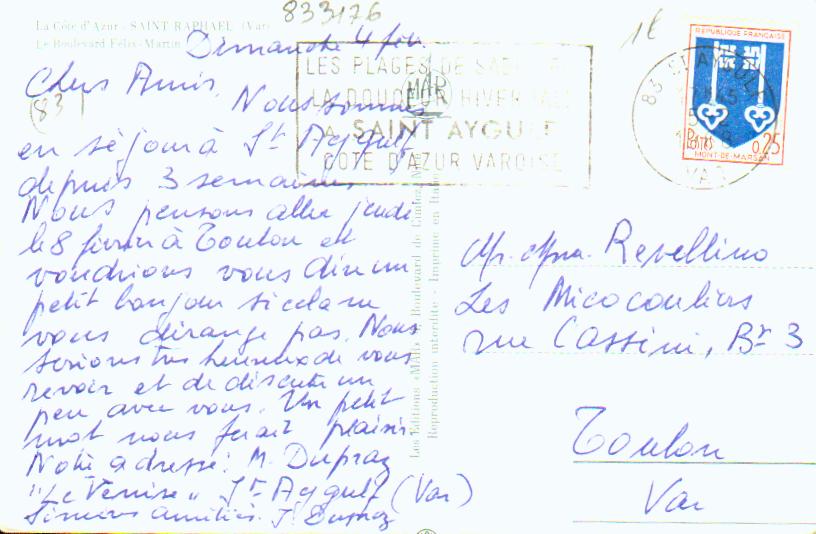 833176
La Côte d'Azur - SAINT RAPHAEL (Var)
Le Boulevard Félix-Martin
1E
Dimanche 4 fév.
Chers Amis,
(83)
Nous sommes
en séjour à St Aygulf
depuis 3 semaines
Nous pensons aller jeudi
le 8 février à Toulon et
voudrions vous dire un
petit bonjour si cela ne
vous dérange pas. Nous
serions très heureux de vous
revoir et de discuter un
peu avec vous. Un petit
mot nous ferait plaisir.
Notre adresse: M. Dupraz
"Le Venise" St Aygulf (Var)
Sincères amitiés. J. Dupraz
LES PLAGES DE SABLE
LA DOUCEUR HIVERNALE
A SAINT AYGULF
COTE D'AZUR VAROISE
MAR
83 ST AYGULF
VAR
REPUBLIQUE FRANÇAISE
POSTES
0,25
MONT-DE-MARSAN
Les Editions «MAR» Boulevard de
Reproduction interdite - Imprimé en Italie
Mr. Mme. Revellino
Les Micocouliers
rue Cassini, Bt 3
Toulon
Var